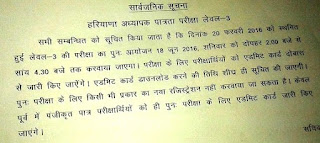 सार्वजनिक सूचना
हरियाणा अध्यापक पात्रता परीक्षा लेवल–3
सभी सम्बन्धित को सूचित किया जाता है कि दिनांक 20 फरवरी 2016 को स्थगित
हुई लेवल–3 की परीक्षा का पुनः आयोजन 18 जून 2016, शनिवार को दोपहर 2.00 बजे से
सायं 4.30 बजे तक करवाया जाएगा। परीक्षा के लिए परीक्षार्थियों को एडमिट कार्ड दोबारा
से जारी किए जाएंगे। एडमिट कार्ड डाउनलोड करने की तिथि शीघ्र ही सूचित की जाएगी।
पुनः परीक्षा के लिए किसी भी प्रकार का नया रजिस्ट्रेशन नहीं करवाया जा सकता है। केवल
पूर्व में पंजीकृत पात्र परीक्षार्थियों को ही पुनः परीक्षा के लिए एडमिट कार्ड जारी किए
जाएंगे।